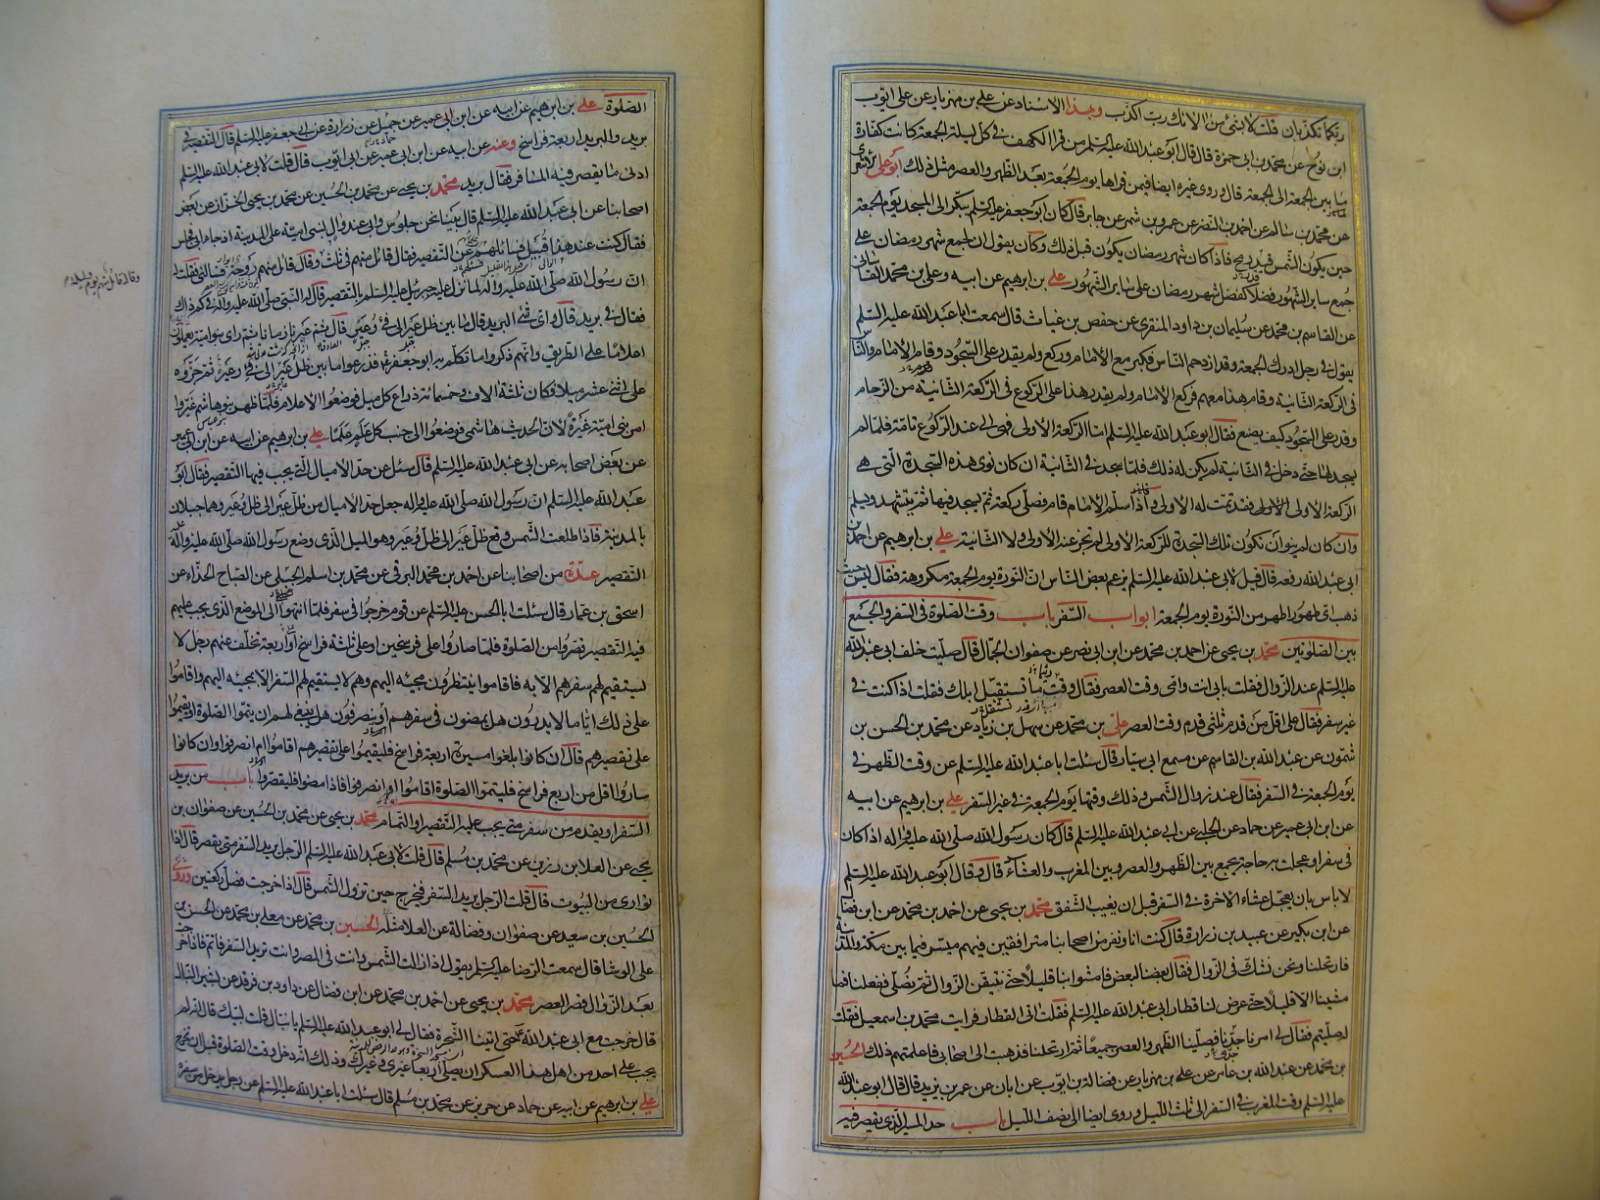 ربكما تكذبان قلت لا بشئ من الائك رب اكذب وبهذا الاسناد عن علي بن مهزيار عن علي ايوب
ابن نوح عن محمد بن ابى حمزة قال قال ابو عبد الله عليه السلم من قرا الكهف في كل ليلة الجمعة كانت كفارة
ما بين الجمعة الى الجمعة قال وروى غيره ايضا فيمن قراها يوم الجمعة بعد الظهر والعصر مثل ذلك ابو علي الاشعرى
عن محمد بن سالم عن احمد بن النضر عن عمرو بن شمر عن جابر قال كان ابو جعفر عليه السلم يبكر الى المسجد يوم الجمعة
حين يكون الشمس قيد رمح فاذا كان شهر رمضان يكون قبل ذلك وكان يقول ان لجمع شهر رمضان على
جمع ساير الشهور فضلا كفضل شهر رمضان على ساير الشهور علي بن ابرهيم عن ابيه وعلي بن محمد القاسانى
عن القاسم بن محمد عن سليمان بن داود المنقرى عن حفص بن غياث قال سمعت ابا عبد الله عليه السلم
يقول فى رجل ادرك الجمعة وقد ازدحم الناس فكبر مع الامام وركع ولم يقدر على السجود وقام الامام والناس
فى الركعة الثانية وقام هذا معهم فركع الامام ولم يقدر هذا على الركوع فى الركعة الثانية من الزحام
وقدر على السجود كيف يصنع فقال ابو عبد الله عليه السلم اما الركعة الاولى فهى الى عند الركوع تامة فلما لم
يسجد لها حتى دخل فى الثانية لم يكن له ذلك فلما سجد فى الثانية ان كان نوى هذه السجدة التى هى
الركعة الاولى فقد تمت له الاولى واذا سلم الامام قام فصلى ركعة ثم يسجد فيها ثم يتشهد ويسلم
وان كان لم ينو ان تكون تلك السجدة للركعة الاولى لم تجز عنه الاولى ولا الثانية علي بن ابرهيم عن احمد بن
ابى عبد الله رفعه قال قيل لابى عبد الله عليه السلم يزعم بعض الناس ان النورة يوم الجمعة مكروهة فقال ليس حيث
ذهب اى طهور اطهر من النورة يوم الجمعة ابواب السفر باب وقت الصلوة فى السفر والجمع
بين الصلوتين محمد بن يحيى عن احمد بن محمد عن ابن ابى نصر عن صفوان الجمال قال صليت خلف ابى عبد الله
عليه السلم عند الزوال فقلت بابى انت وامى وقت العصر فقال وقت ما تستقبل ابلك فقلت اذا كنت فى
غير سفر فقال على اقل من قدم ثلثى قدم وقت العصر علي بن محمد عن سهل بن زياد عن محمد بن الحسن بن
شمون عن عبد الله بن القاسم عن مسمع ابى سيار قال سئلت ابا عبد الله عليه السلم عن وقت الظهر فى
يوم الجمعة فى السفر فقال عند زوال الشمس وذلك وقتها يوم الجمعة فى غير السفر علي بن ابرهيم عن ابيه
عن ابن ابى عمير عن حماد عن الحلبى عن ابى عبد الله عليه السلم قال كان رسول الله صلى الله عليه واله اذا كان
فى سفر او عجلت به حاجة يجمع بين الظهر والعصر وبين المغرب والعشاء قال وقال ابو عبد الله عليه السلم
لا باس بان يعجل عشاء الاخرة فى السفر قبل ان يغيب الشفق محمد بن يحيى عن احمد بن محمد عن ابن فضال
عن ابن بكير عن عبيد بن زرارة قال كنت انا ونفر من اصحابنا مترافقين فيهم ميسر فيما بين مكة والمدينة
فارتحلنا ونحن نشك فى الزوال فقال بعضنا لبعض فامشوا بنا قليلا حتى نتيقن الزوال ثم نصلى ففعلنا فما
مشينا الا قليلا حتى عرض لنا قطار ابى عبد الله عليه السلم فقلت اتى القطار فرايت محمد بن اسمعيل فقلت
له صليتم فقال لى امرنا جدى فصلينا الظهر والعصر جميعا ثم ارتحلنا فذهبت الى اصحابى فاعلمتهم ذلك الحسين
بن محمد عن عبد الله بن عامر عن علي بن مهزيار عن فضالة بن ايوب عن ابان عن عمر بن يزيد قال قال ابو عبد الله
عليه السلم وقت المغرب فى السفر الى ثلث الليل وروى ايضا الى نصف الليل باب حد المسير الذى يقصر فيه
الصلوة علي بن ابرهيم عن ابيه عن ابن ابى عمير عن جميل عن زرارة عن ابى جعفر عليه السلم قال التقصير فى
بريد والبريد اربعة فراسخ وعنه عن ابيه عن ابن ابى عمير عن ابى ايوب قال قلت لابى عبد الله عليه السلم
ادنى ما يقصر فيه المسافر فقال بريد محمد بن يحيى عن محمد بن الحسين عن محمد بن يحيى الخزاز عن بعض
اصحابنا عن ابى عبد الله عليه السلم قال بينا نحن جلوس وابى عند وال لبنى امية على المدينة اذ جاء ابى فجلس
فقال كنت عند هذا قبيل فسائلهم عن التقصير فقال قائل منهم فى ثلث وقال قائل منهم روحة فسالنى فقلت له
ان رسول الله صلى الله عليه واله لما نزل عليه جبرئيل عليه السلم بالتقصير قال له النبى صلى الله عليه واله فى كم ذاك
فقال فى بريد قال واى شئ البريد قال ما بين ظل عير الى فئ وعير قال ثم عبرنا زمانا ثم راى بنو امية يعملون
اعلاما على الطريق وانهم ذكروا ما تكلم به ابو جعفر فذرعوا ما بين ظل عير الى فئ وعير ثم جزوه
على اثنى عشر ميلا فكان ثلثة الاف وخمسمائة ذراع كل ميل فوضعوا الاعلام فلما ظهر بنو هاشم غيروا
امر بنى امية غيرة لان الحديث هاشمى فوضعوا الى جنب كل علم علما علي بن ابرهيم عن ابيه عن ابن ابى عمير
عن بعض اصحابه عن ابى عبد الله عليه السلم قال سئل عن حد الاميال التى يجب فيها التقصير فقال ابو
عبد الله عليه السلم ان رسول الله صلى الله عليه واله جعل حد الاميال من ظل عير الى ظل وعير وهما جبلان
بالمدينة فاذا طلعت الشمس وقع ظل عير الى ظل وعير وهو الميل الذى وضع رسول الله صلى الله عليه واله عليه
التقصير عدة من اصحابنا عن احمد بن محمد البرقى عن محمد بن اسلم الجبلى عن الصباح الحذاء عن
اسحق بن عمار قال سئلت ابا الحسن عليه السلم عن قوم خرجوا فى سفر فلما انتهوا الى الموضع الذى يجب عليهم
فيه التقصير قصروا من الصلوة فلما صاروا على فرسخين او على ثلثة فراسخ او اربعة تخلف عنهم رجل لا
يستقيم لهم سفرهم الا به فاقاموا ينتظرون مجيئه اليهم وهم لا يستقيم لهم السفر الا بمجيئه اليهم واقاموا
على ذلك اياما لا يدرون هل يمضون فى سفرهم او ينصرفون هل ينبغى لهم ان يتموا الصلوة او يقيموا
على تقصيرهم قال ان كانوا بلغوا مسيرة اربعة فراسخ فليقيموا على تقصيرهم اقاموا ام انصرفوا وان كانوا
ساروا اقل من اربع فراسخ فليتموا الصلوة اقاموا او انصرفوا فاذا مضوا فليقصروا باب من يريد
السفر او يقدم من سفر متى يجب عليه التقصير او التمام محمد بن يحيى عن محمد بن الحسين عن صفوان بن
يحيى عن العلا بن رزين عن محمد بن مسلم قال قلت لابى عبد الله عليه السلم الرجل يريد السفر متى يقصر قال اذا
توارى من البيوت قال قلت الرجل يريد السفر فيخرج حين تزول الشمس قال اذا خرجت فصل ركعتين وروى
الحسين بن سعيد عن صفوان وفضالة عن العلا مثله الحسين بن محمد عن معلى بن محمد عن الحسن بن
على الوشا قال سمعت الرضا عليه السلم يقول اذا زالت الشمس وانت فى المصر وانت تريد السفر فاتم فاذا خرجت
بعد الزوال قصر العصر محمد بن يحيى عن احمد بن محمد عن ابن فضال عن داود بن فرقد عن بشير النبال
قال خرجت مع ابى عبد الله حتى اتينا الشجرة فقال لى ابو عبد الله عليه السلم يا نبال قلت لبيك قال انه لم
يجب على احد من اهل هذا العسكر ان يصلى اربعا غيرى وغيرك وذلك انه دخل وقت الصلوة قبل ان نخرج
علي بن ابرهيم عن ابيه عن حماد عن حريز عن محمد بن مسلم قال سئلت ابا عبد الله عليه السلم عن رجل يدخل من سفره